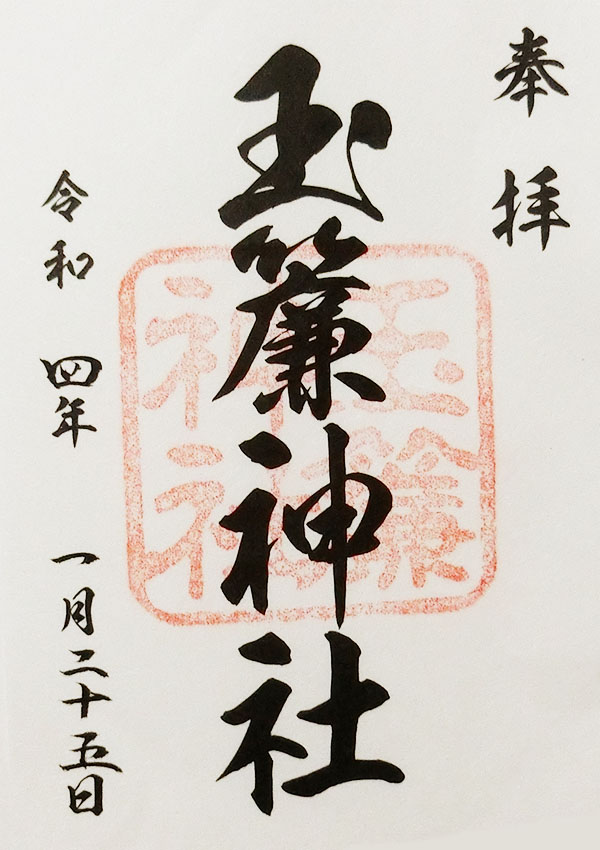 奉拝
玉簾神社
令和 四年 一月二十五日
玉簾
神社